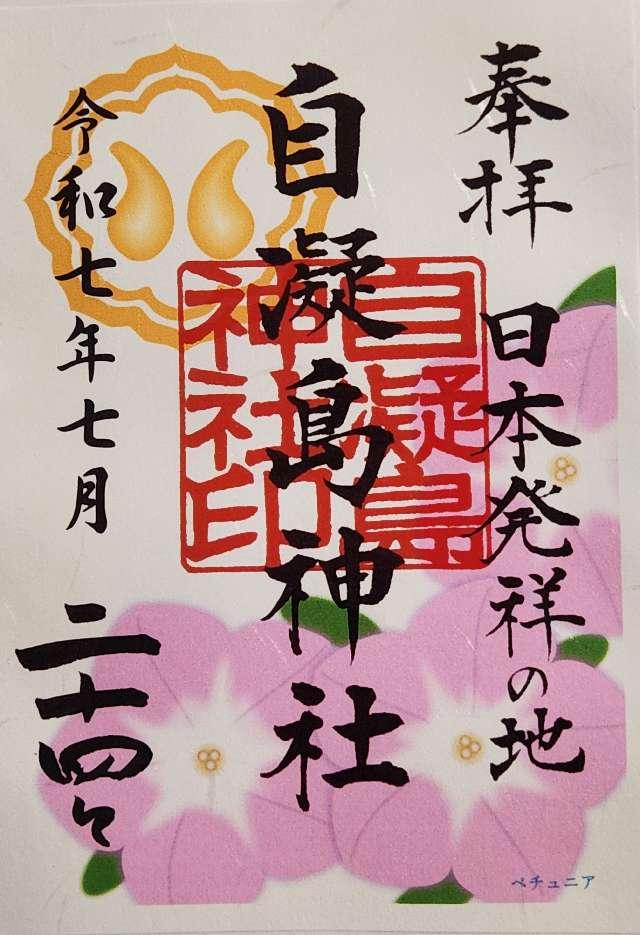 奉拝
日本発祥の地
自凝島神社
自凝島
神社印
令和七年七月
二十四日
ペチュニア